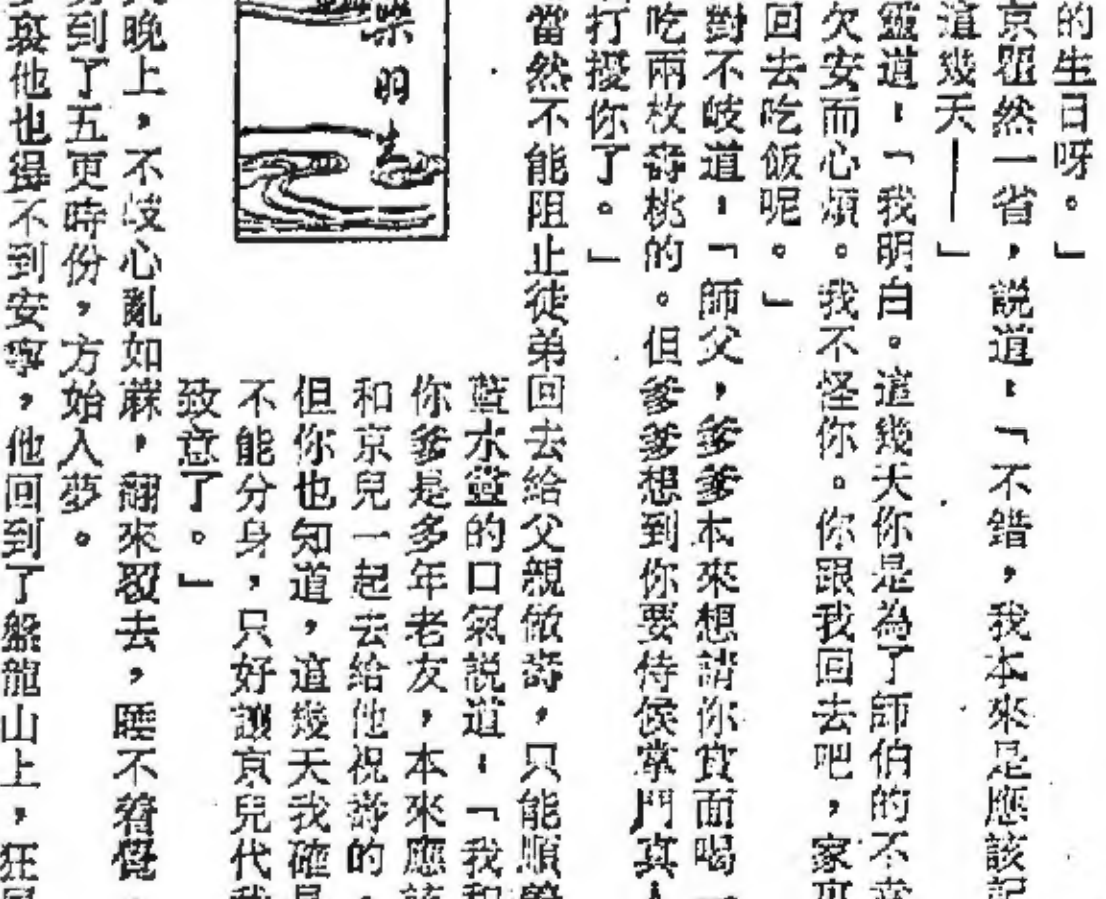 的生日呀。」
京瞿然一省，説道：「不錯，我本來是應該記
這幾天——」
靈道：「我明白。這幾天你是為了師伯的不幸
欠安而心煩。我不怪你。你跟我回去吧，家
回去吃飯呢。」
對不岐道：「師父，爹爹本來想請你賞面喝一
吃兩枚壽桃的。但爹爹想到你要侍候掌門真人
打擾你了。」
當然不能阻止徒弟回去給父親做壽，只能順
藍水靈的口氣説道：「我和
你爹是多年老友，本來應該
和京兒一起去給他祝壽的，
但你也知道，這幾天我確是
不能分身，只好讓京兒代我
致意了。」
梁羽生
晚上，不岐心亂如蔴，翻來覆去，睡不着覺，
到了五更時份，方始入夢。
裏他也得不到安寧，他回到了盤龍山上，狂風